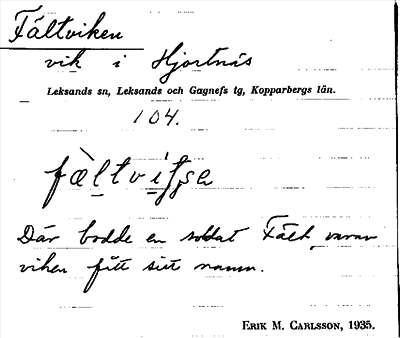 Fältviken
vik i Hjortnäs
Leksands sn, Leksands och Gagnefs tg, Kopparbergs län.
104.
Där bodde en soldat Fält, varav
viken fått sitt namn.
ERIK M. CARLSSON, 1935.